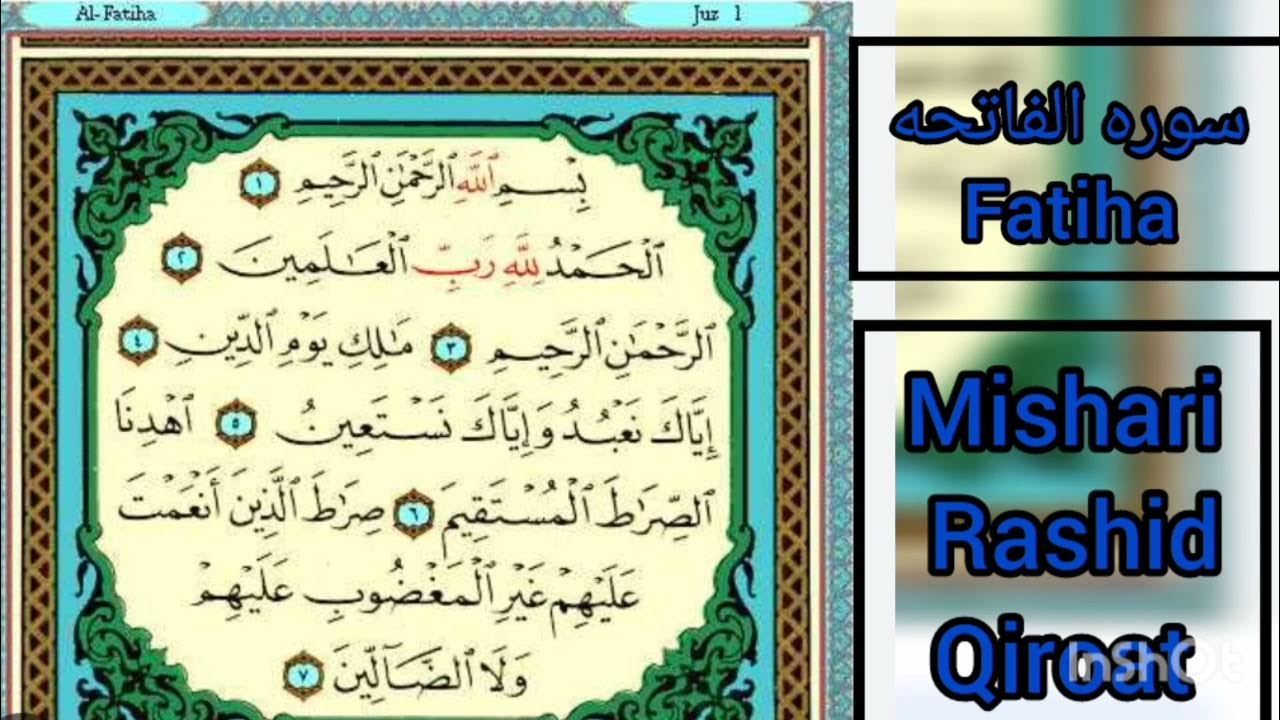 Al-Fatiha
Juz 1
بِسْمِ ٱللَّهِ ٱلرَّحْمَٰنِ ٱلرَّحِيمِ ١
ٱلْحَمْدُ لِلَّهِ رَبِّ ٱلْعَٰلَمِينَ ٢
ٱلرَّحْمَٰنِ ٱلرَّحِيمِ ٣ مَٰلِكِ يَوْمِ ٱلدِّينِ ٤
إِيَّاكَ نَعْبُدُ وَإِيَّاكَ نَسْتَعِينُ ٥ ٱهْدِنَا
ٱلصِّرَٰطَ ٱلْمُسْتَقِيمَ ٦ صِرَٰطَ ٱلَّذِينَ أَنْعَمْتَ
عَلَيْهِمْ غَيْرِ ٱلْمَغْضُوبِ عَلَيْهِمْ
وَلَا ٱلضَّآلِّينَ ٧
سوره الفاتحه
Fatiha
Mishari
Rashid
Qiroat
InShOt